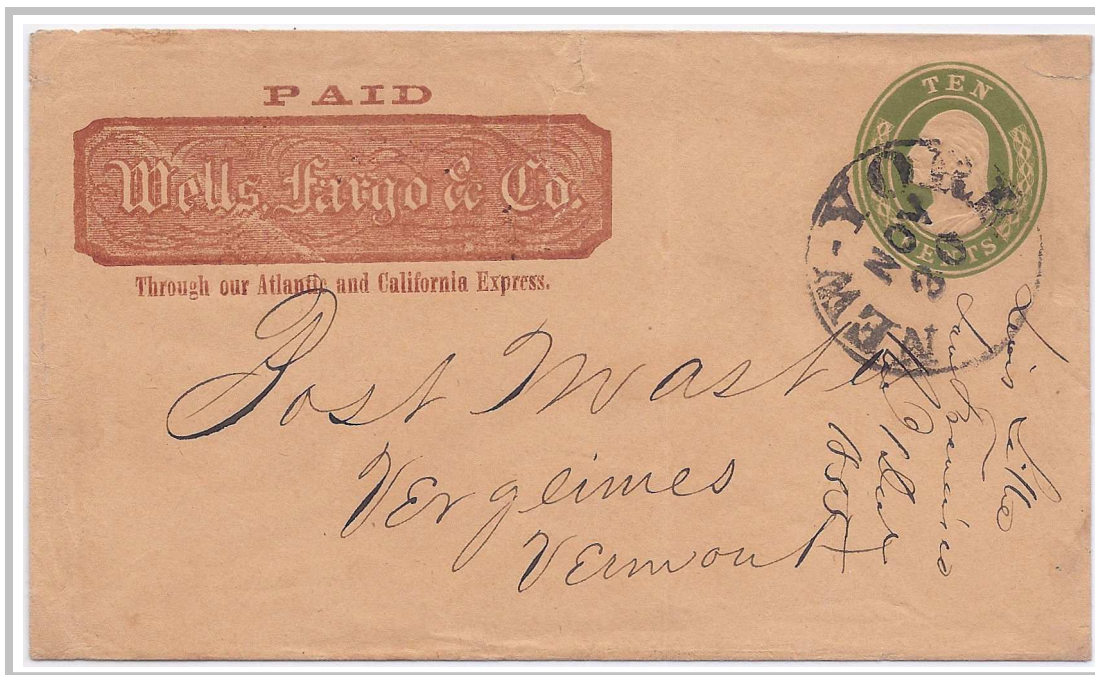 PAID
Wells, Fargo & Co.
Through our Atlantic and California Express.
TEN
CENTS
NEW-YORK
NOV
20
Post Master
Vergeimes
Vermont
San Francisco